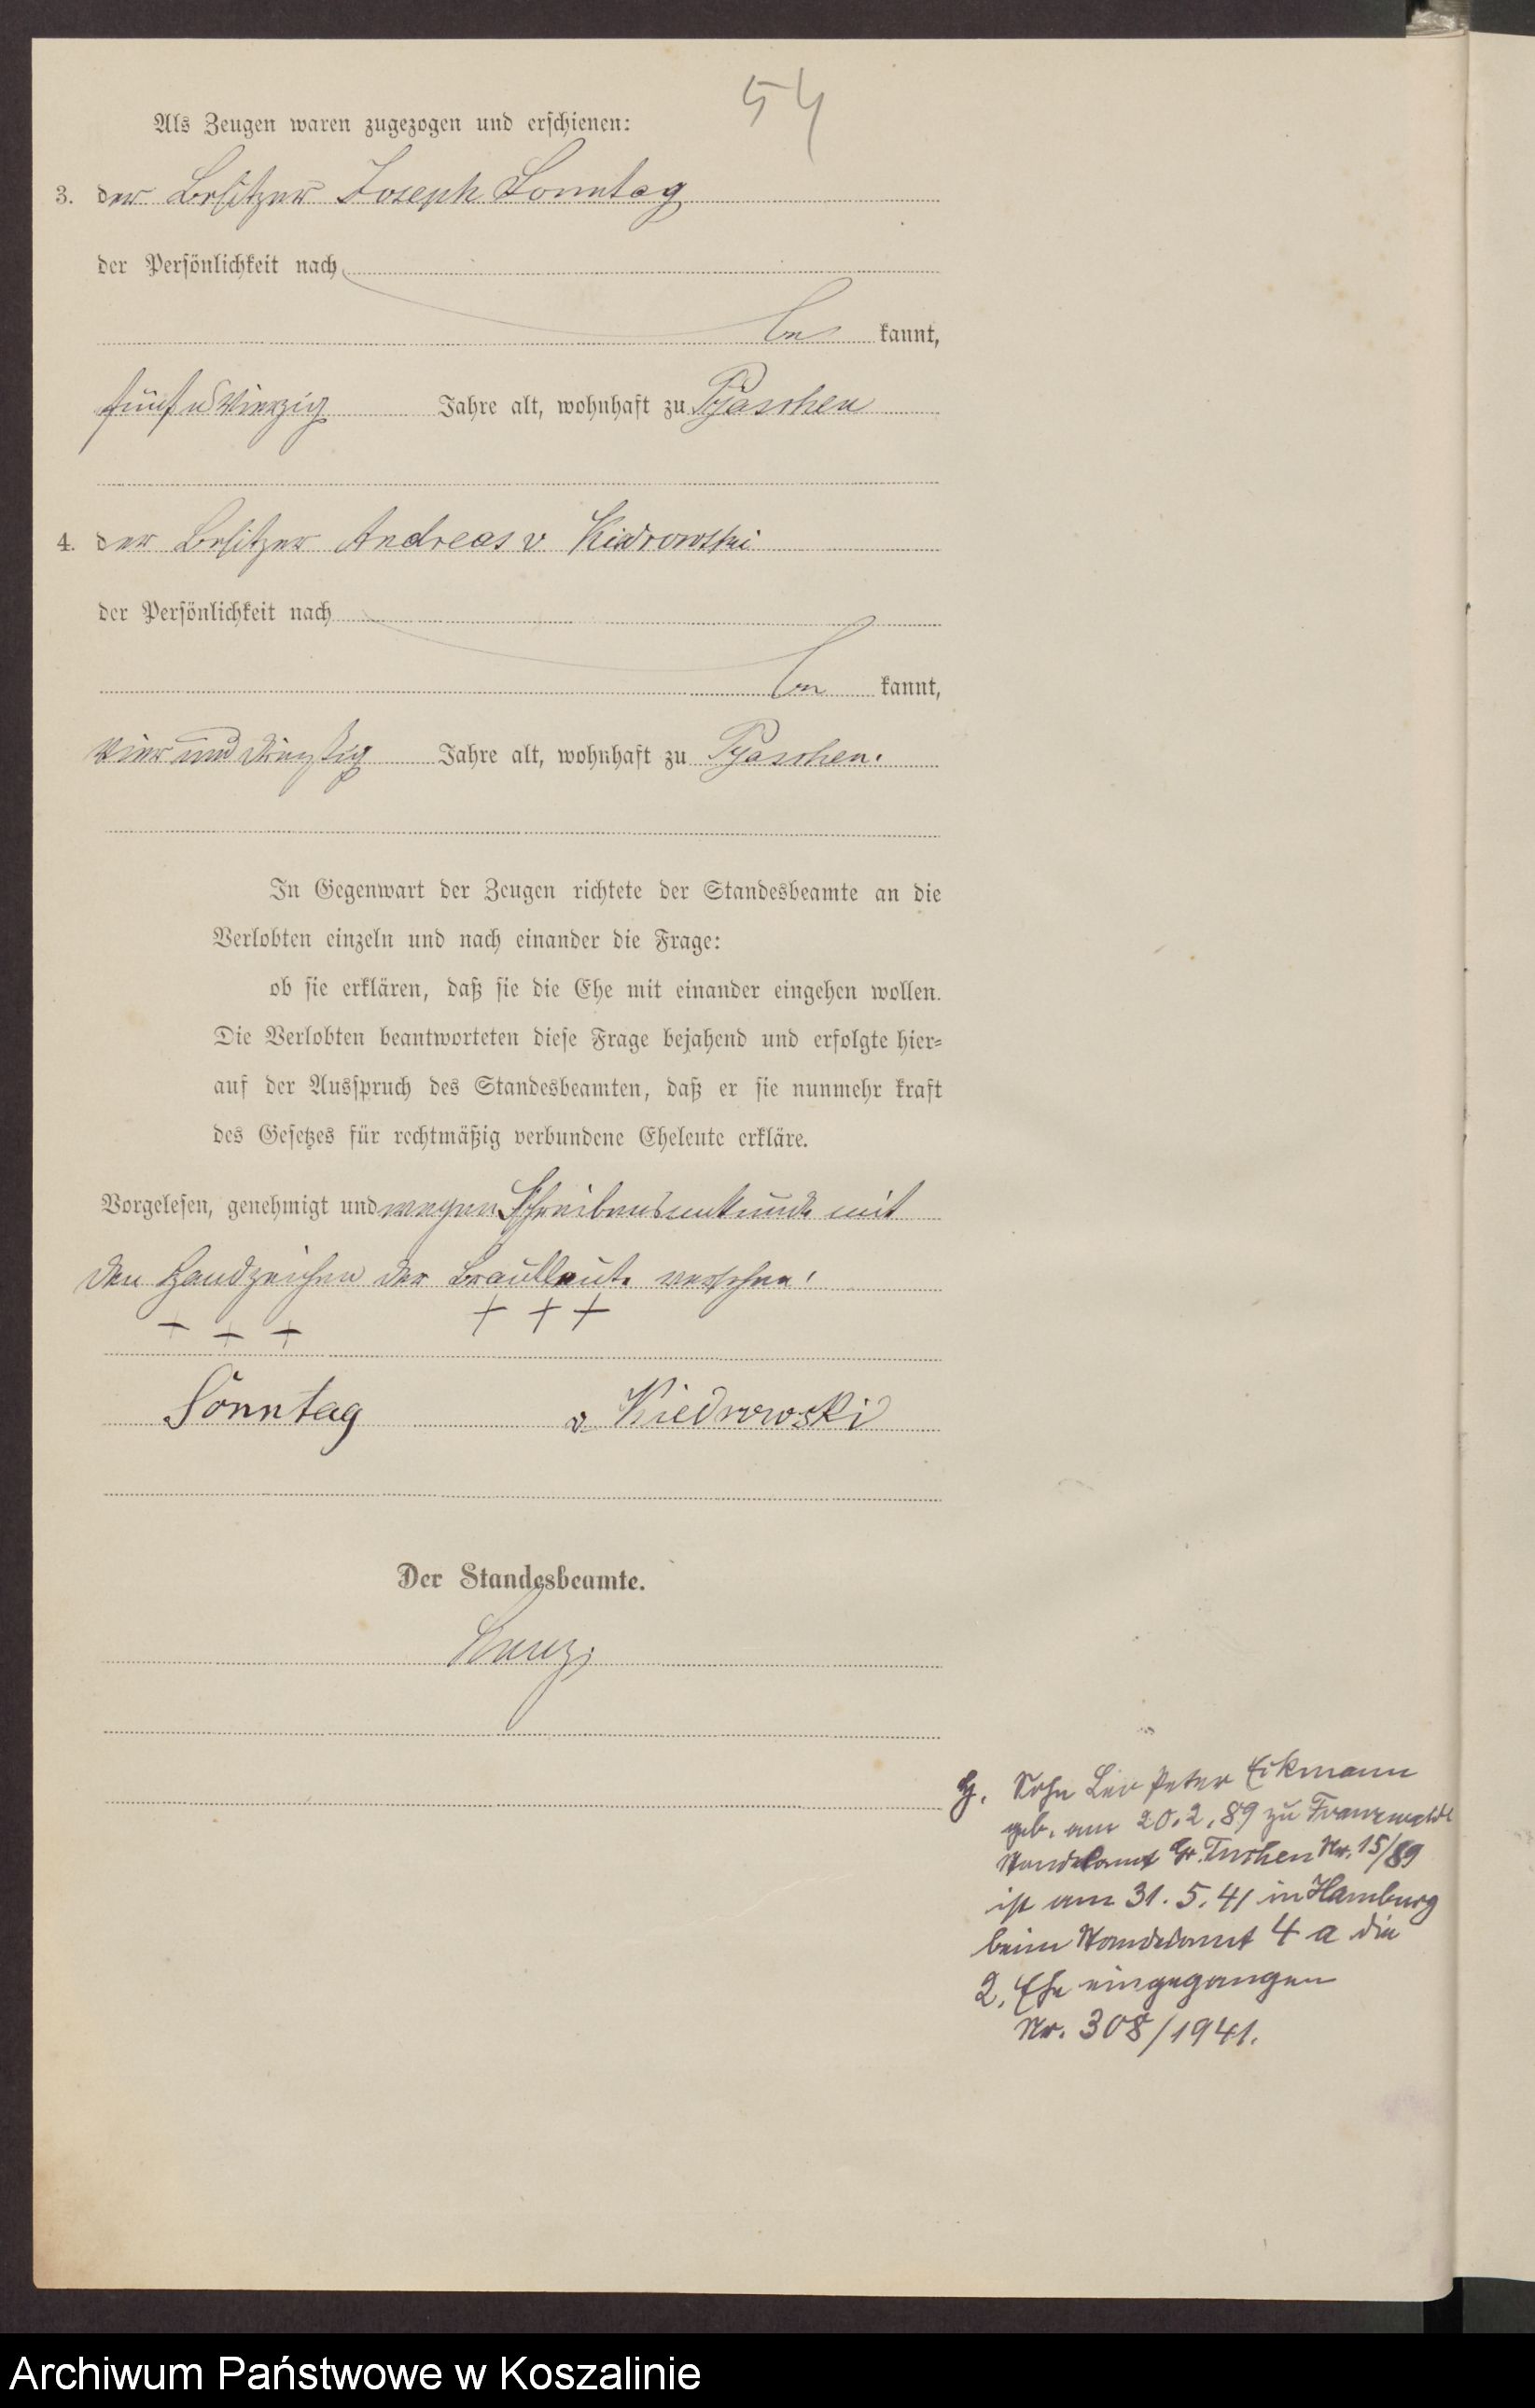 54
Als Zeugen waren zugezogen und erschienen:
3. der Besitzer Joseph Sonntag
der Persönlichkeit nach
be kannt,
fünf u vierzig Jahre alt, wohnhaft zu Pyaschen
4. der Besitzer Andreas v Kiedrowski
der Persönlichkeit nach
be kannt,
vier und dreißig Jahre alt, wohnhaft zu Pyaschen.
In Gegenwart der Zeugen richtete der Standesbeamte an die
Verlobten einzeln und nach einander die Frage:
ob sie erklären, daß sie die Ehe mit einander eingehen wollen.
Die Verlobten beantworteten diese Frage bejahend und erfolgte hier-
auf der Ausspruch des Standesbeamten, daß er sie nunmehr kraft
des Gesetzes für rechtmäßig verbundene Eheleute erkläre.
Vorgelesen, genehmigt und wegen Schreibensunkunde mit
den Handzeichen der Brautleute versehen.
+ + + + + +
Sonntag v. Kiedrowski
Der Standesbeamte.
G. Sohn Leo Peter Eikmann
geb. am 20.2.89 zu Franzwalde
Standesamt Gr. Tuchen Nr. 15/89
ist am 31.5.41 in Hamburg
beim Standesamt 4 a die
2. Ehe eingegangen
Nr. 308/1941.
Archiwum Państwowe w Koszalinie